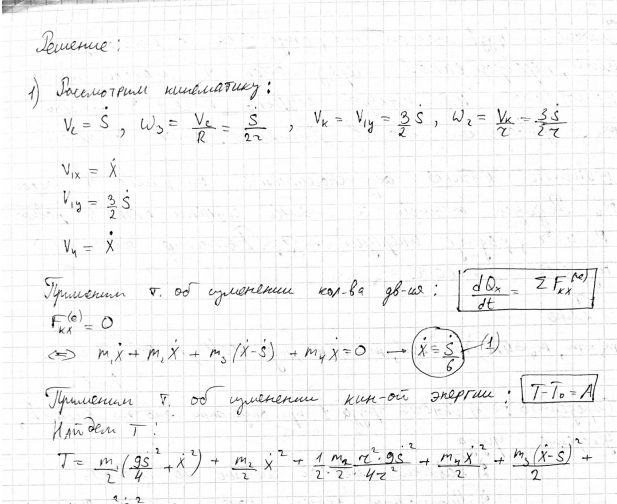 Решение:
1) Рассмотрим кинематику:
V_c = Ṡ, ω₃ = V_c/R = Ṡ/2r, V_k = V_1y = 3/2 Ṡ, ω₂ = V_k/r = 3Ṡ/2r
V_1x = Ẋ
V_1y = 3/2 Ṡ
V_4 = Ẋ
Применим т. об изменении кол-ва дв-ия: dQ_x/dt = Σ F_kx^(e)
F_kx^(e) = 0
⇔ m₁ẋ + m₂ẋ + m₃(ẋ-ṡ) + m₄ẋ = 0 → ẋ = Ṡ/6 (1)
Применим т. об изменении кин-ой энергии: T-T₀ = A
Найдем T:
T = m₁/2 (9Ṡ²/4 + ẋ²) + m₂/2 ẋ² + 1/2 m₂/2 r²·9Ṡ²/4r² + m₄ẋ²/2 + m₃(ẋ-ṡ)²/2 +